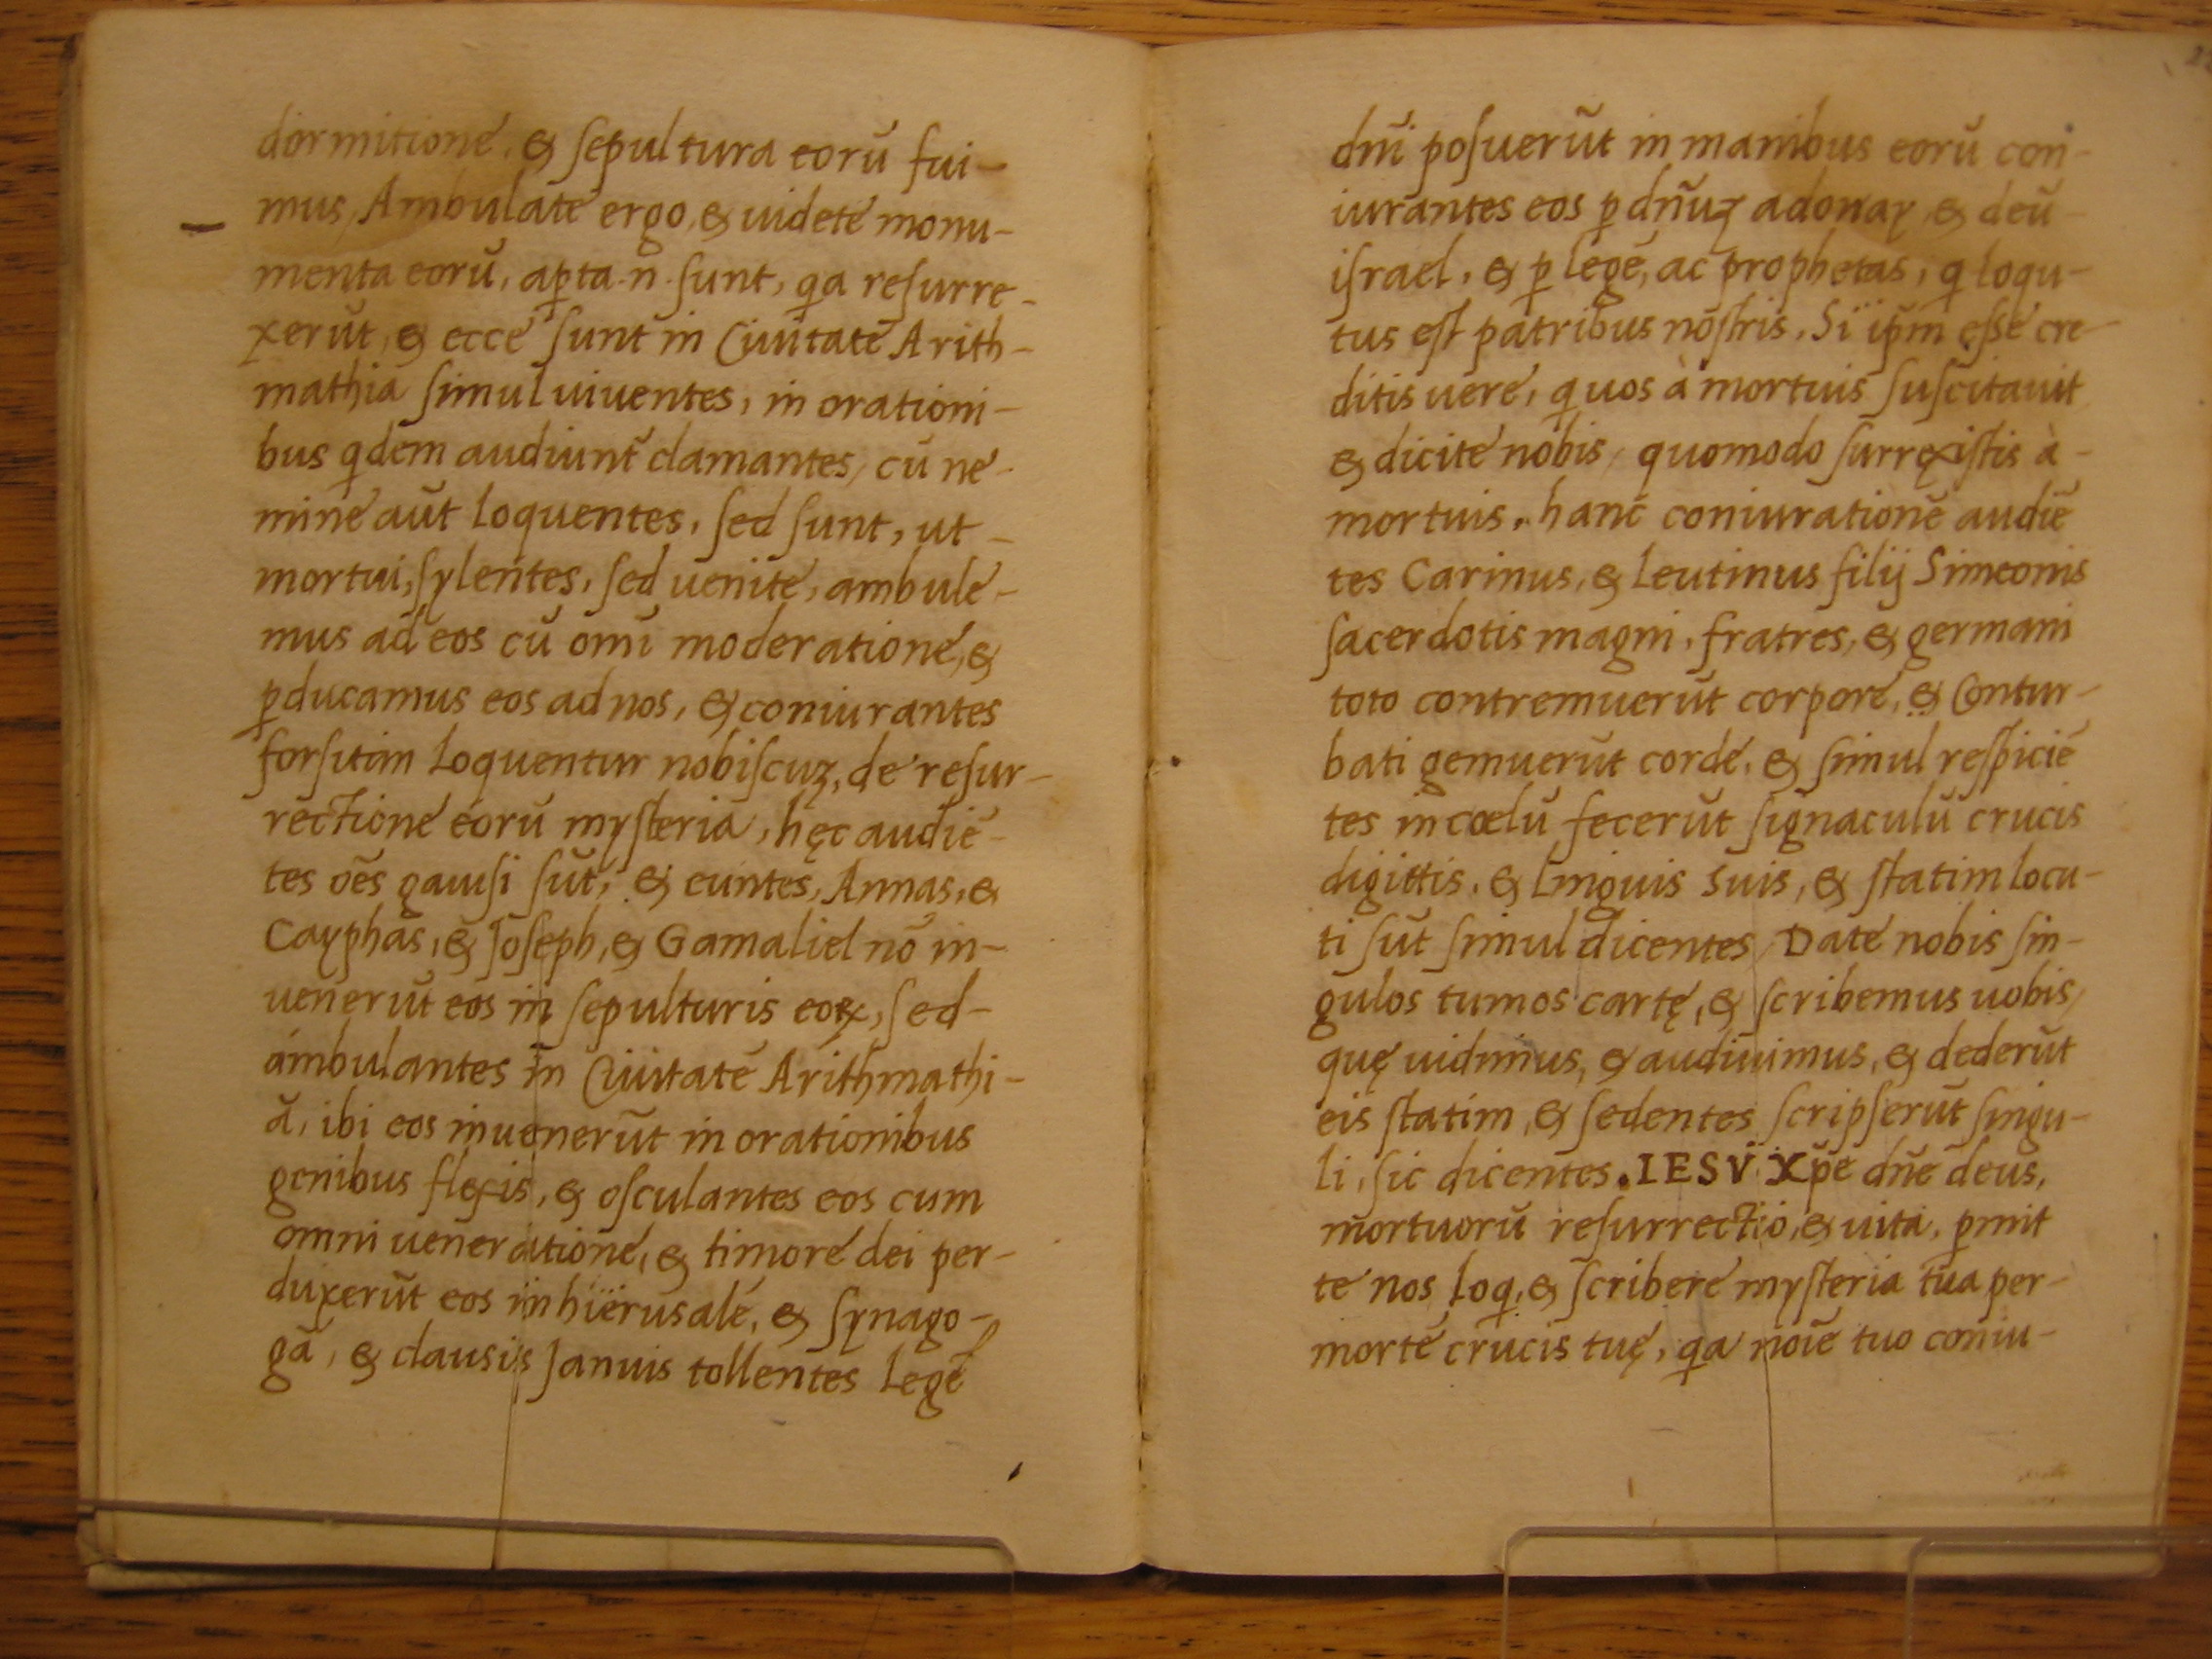 dormitione, & sepultura eorū fui-
mus, Ambulate ergo, & uidete monu-
menta eorū, ap̱ta .n. sunt, qa resurre-
xerūt, & ecce sunt in Ciuitate Arith-
mathia simul uiuentes, in orationi-
bus qdem audiunt̃ clamantes, cū ne-
mine aūt loquentes, sed sunt, ut -
mortui, sylentes, sed uenite, ambule-
mus ad eos cū omī moderatione, &
p̱ducamus eos ad nos, & coniurantes
forsitan loquentur nobiscuꝫ, de resur-
rectione eorū mysteria, hęc audiē-
tes oēs gauisi sūt, & euntes, Annas, &
Cayphas, & Joseph, & Gamaliel nō in-
uenerūt eos in sepulturis eoꝝ, sed-
ambulantes in Ciuitate Arithmathi-
ā, ibi eos inuenerūt in orationibus
genibus flexis, & osculantes eos cum
omni ueneratione, & timore dei per-
duxerūt eos in hierusalē, & synago-
gā, & clausis Januis tollentes Legē
dn̄i posuerūt in manibus eorū con-
iurantes eos ꝑ dn̄uꝫ adonay, & deū-
israel, & ꝑ legē, ac prophetas, q loqu-
tus est patribus nostris, Si ip̄m esse cre-
ditis uere, quos à mortuis suscitauit
& dicite nobis, quomodo surrexistis à-
mortuis, hanc coniurationē audiē
tes Carinus, & Leutinus filij Simeonis
sacerdotis magni, fratres, & germani
toto contremuerūt corpore, & Contur-
bati gemuerūt corde, & simul respiciē
tes in cœlū fecerūt signaculū crucis
digittis, & Linguis suis, & statim locu-
ti sūt simul dicentes, Date nobis sin-
gulos tumos cartę, & scribemus uobis,
quę uidimus, & audiuimus, & dederūt
eis statim, & sedentes scripserūt singu-
li, sic dicentes. IESV Xp̄e dn̄e deus,
mortuorū resurrectio, & uita, ꝑmit
te nos loq, & scribere mysteria tua per-
mortē crucis tuę, qa noīe tuo coniu-